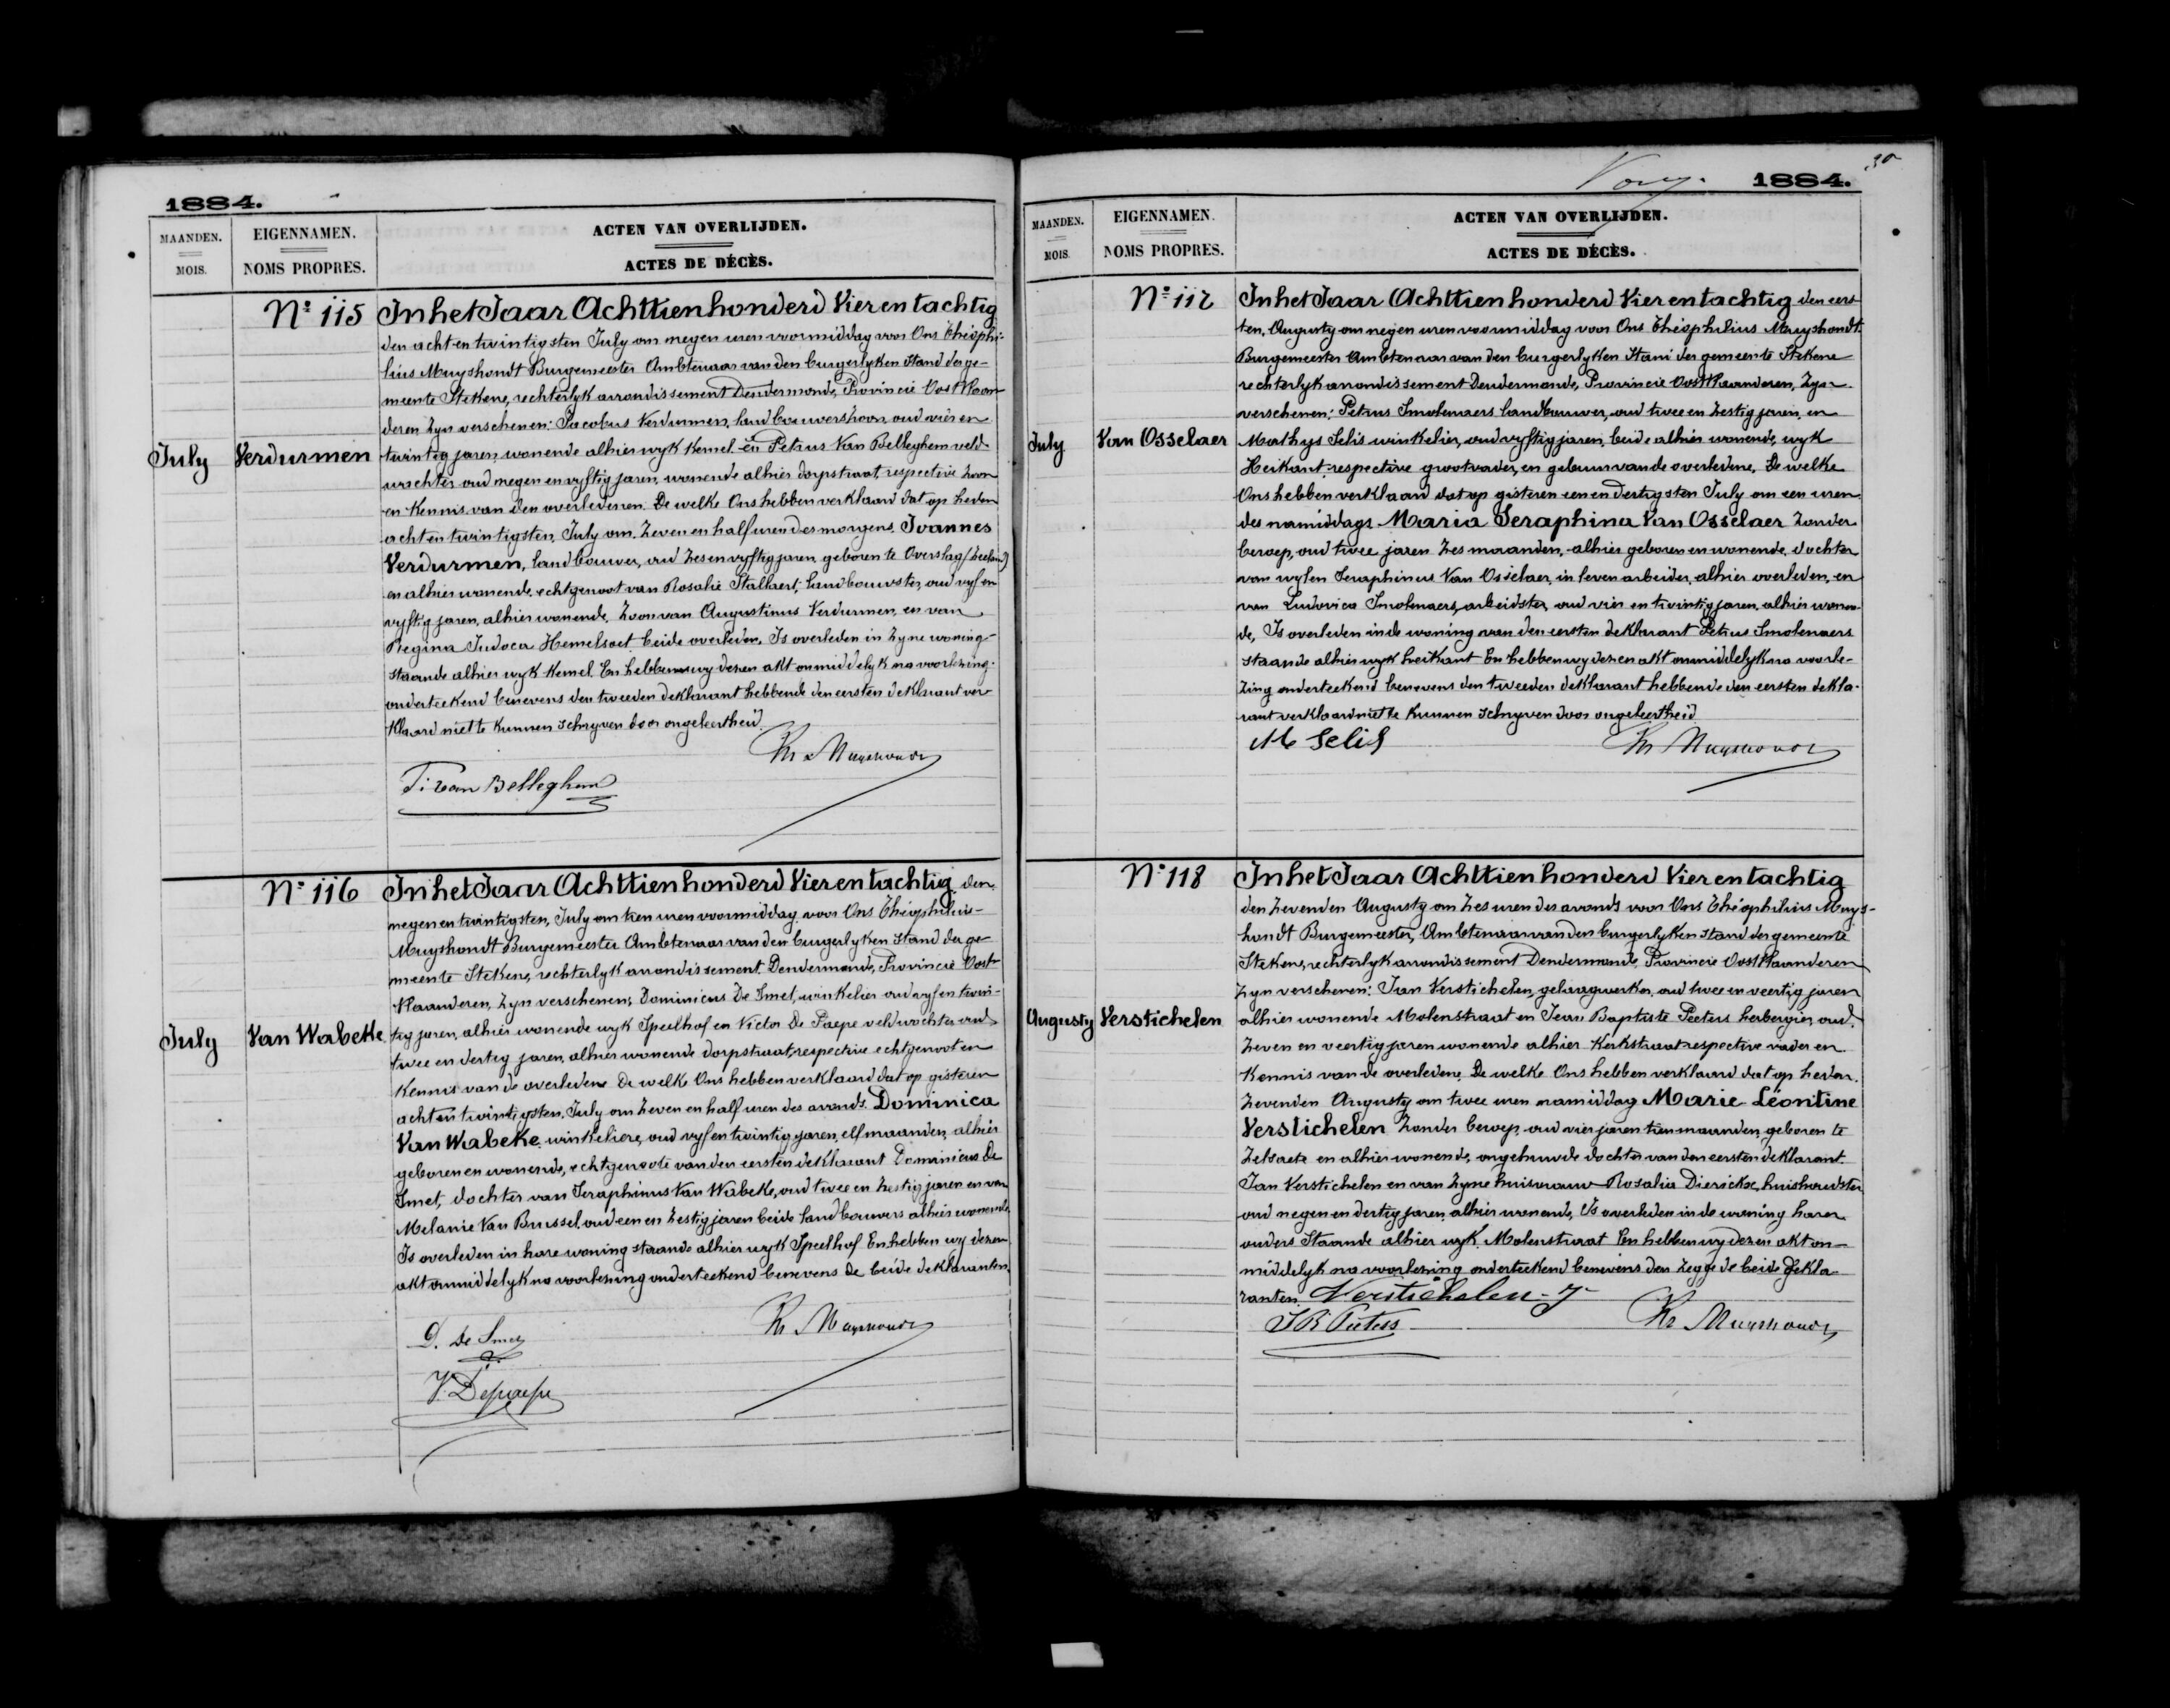 1884.
MAANDEN. EIGENNAMEN. ACTEN VAN OVERLIJDEN.
MOIS. NOMS PROPRES. ACTES DE DÉCÈS.
N° 115 In het Jaar Achttien honderd Vier en tachtig
den acht en twintigsten July om negen uren voormiddag voor Ons Théophi-
lius Muyshondt Burgemeester Ambtenaar van den burgerlyken Stand der ge-
meente Stekene, rechterlyk arrondissement Dendermonde, Provincie Oost Vlaan-
deren zyn verschenen: Jacobus Verdurmen, landbouwerszoon, oud vier en
July Verdurmen twintig jaren, wonende alhier wyk Kemel en Petrus Van Belleghem veld-
wachter oud negen en vyftig jaren, wonende alhier dorpstraat, respective zoon
en Kennis van den overledenen. De welke Ons hebben verklaard dat op heden
acht en twintigsten, July om zeven en half uren des morgens Joannes
Verdurmen, landbouwer, oud zes en vyftig jaren, geboren te Overslag (Zeeland)
en alhier wonende, echtgenoot van Rosalie Stallaert, landbouwster, oud vyf en
vyftig jaren, alhier wonende, zoon van Augustinus Verdurmen, en van
Regina Judoca Hemelsoet beide overleden. Is overleden in Zyne woning
staande alhier wyk Kemel. En hebben wy dezen akt onmiddelyk na voorlezing
onderteekend benevens den tweeden deklarant hebbende den eersten deklarant ver-
klaard niet te kunnen schryven door ongeleertheid.
Th. Muyshondt
P: van Belleghem
N° 116 In het Jaar Achttien honderd Vier en tachtig den
negen en twintigsten, July om tien uren voormiddag voor Ons Théophilius
Muyshondt Burgemeester Ambtenaar van den burgerlyken Stand der ge-
meente Stekene, rechterlyk arrondissement Dendermonde, Provincie Oost-
Vlaanderen, zyn verschenen; Dominicus De Smet, winkelier oud vyf en twin-
July Van Wabeke tig jaren, alhier wonende wyk Speelhof en Victor De Paepe veldwachter oud
twee en dertig jaren, alhier wonende dorpstraat, respective echtgenoot en
Kennis van de overledene De welk Ons hebben verklaard dat op gisteren
acht en twintigsten, July om zeven en half uren des avonds Dominica
Van Wabeke, winkeliere, oud vyf en twintig jaren, elf maanden, alhier
geboren en wonende, echtgenoote van den eersten deklarant Dominicus De
Smet, dochter van Seraphinus Van Wabeke, oud twee en zestig jaren en van
Melanie Van Brussel, oud een en zestig jaren beide landbouwers alhier wonende.
Is overleden in hare woning staande alhier wyk Speelhof En hebben wy dezen
akt onmiddelyk na voorlezing onderteekend benevens de beide deklaranten.
Th. Muyshondt
D. De Smet
V. Depaepe
1884.
MAANDEN. EIGENNAMEN. ACTEN VAN OVERLIJDEN.
MOIS. NOMS PROPRES. ACTES DE DÉCÈS.
N° 117 In het Jaar Achttien honderd Vier en tachtig den eers-
ten, Augusty om negen uren voormiddag voor Ons Théophilius Muyshondt
Burgemeester Ambtenaar van den burgerlyken Stand der gemeente Stekene
rechterlyk arrondissement Dendermonde, Provincie Oost Vlaanderen, Zyn
verschenen; Petrus Smolenaers landbouwer, oud twee en zestig jaren, en
July Van Osselaer Mathys Selis winkelier, oud vyftig jaren, beide alhier wonende, wyk
Heikant, respective grootvader, en gebuur van de overledene, De welke
Ons hebben verklaard dat op gisteren een en dertigsten July om een uren
des namiddags Maria Seraphina Van Osselaer zonder
beroep, oud twee jaren zes maanden, alhier geboren en wonende, dochter
van wylen Seraphinus Van Osselaer, in leven arbeider, alhier overleden, en
van Ludovica Smolenaers, arbeidster, oud vier en twintig jaren, alhier wonen-
de, Is overleden in de woning van den eersten deklarant Petrus Smolenaers
staande alhier wyk heikant En hebben wy dezen akt onmiddelyk na voorle-
zing onderteekend benevens den tweeden deklarant hebbende den eersten dekla-
rant verklaard niet te kunnen schryven door ongeleertheid
M Selis Th. Muyshondt
N° 118 In het Jaar Achttien honderd Vier en tachtig
den zevenden Augusty om zes uren des avonds voor Ons Théophilius Muys-
hondt Burgemeester, Ambtenaar van den burgerlyken stand der gemeente
Stekene, rechterlyk arrondissement Dendermonde, Provincie Oost Vlaanderen
zyn verschenen: Jan Verstichelen, gelaagwerker, oud twee en veertig jaren
Augusty Verstichelen alhier wonende Molenstraat en Jean Baptiste Peeters herbergier, oud
zeven en veertig jaren wonende alhier Kerkstraat respective vader en
Kennis van de overledene. De welke Ons hebben verklaard dat op heden
zevenden Augusty om twee uren namiddag Marie Léontine
Verstichelen zonder beroep, oud vier jaren tien maanden, geboren te
Zelzaete en alhier wonende, ongehuwde dochter van den eersten deklarant
Jan Verstichelen en van zyne huisvrouw Rosalia Dierickx, huishoudster
oud negen en dertig jaren, alhier wonende, Is overleden in de woning harer
ouders Staande alhier wyk Molenstraat En hebben wy dezen akt on-
middelyk na voorlezing onderteekend benevens den zegge de beide dekla-
ranten. Verstichelen J
J B Peeters Th. Muyshondt